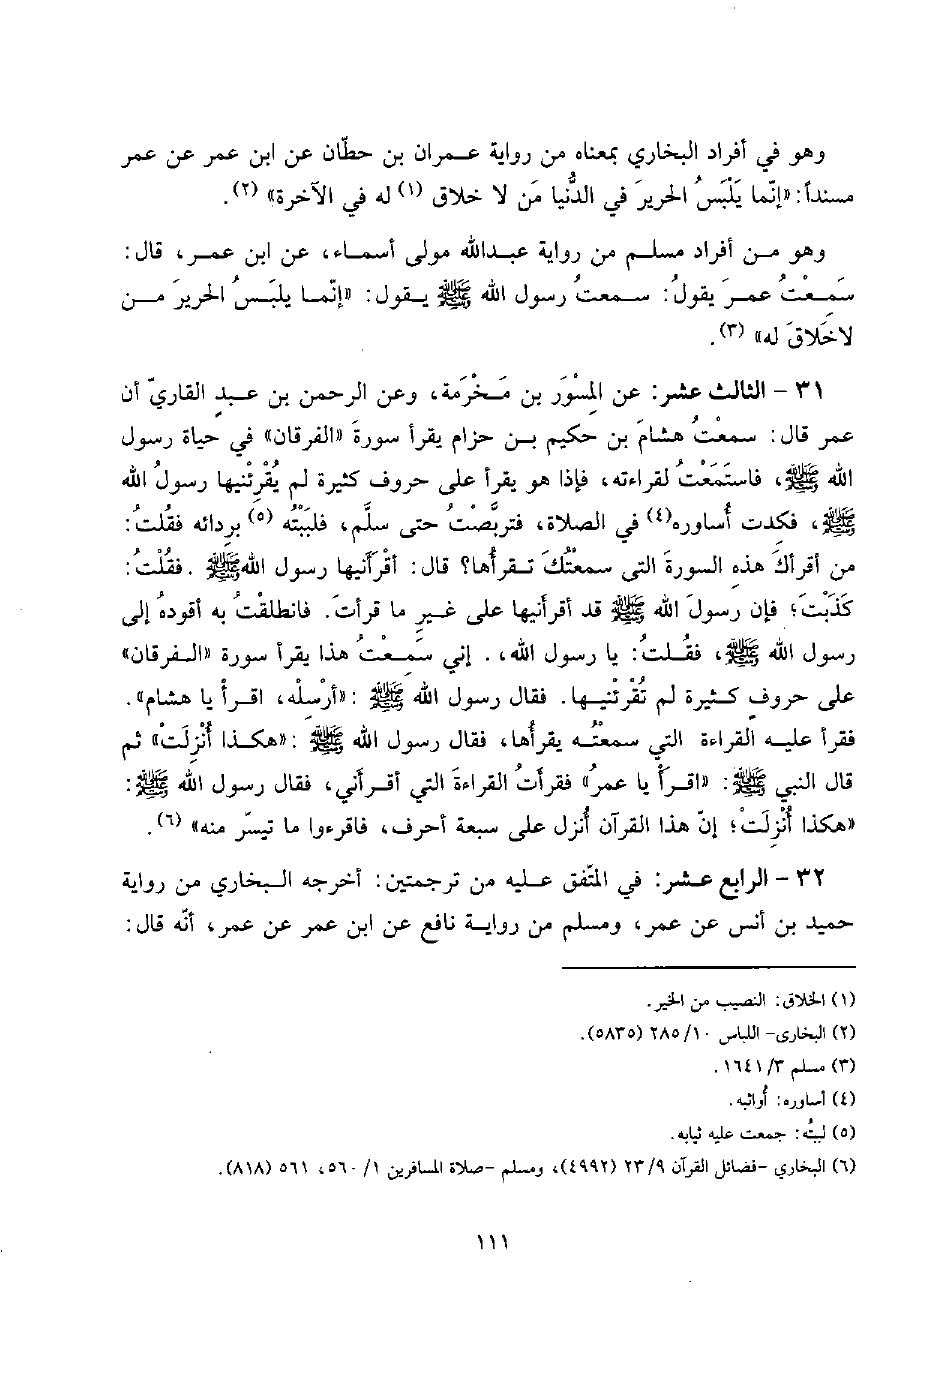 وهو في أفراد البخاري بمعناه من رواية عـمران بن حطّان عن ابن عمر عن عمر
مسنداً: «إنّما يَلْبَسُ الحريرَ في الدُّنيا مَن لا خلاق (١) له في الآخرة» (٢).
وهو مـن أفراد مسلـم من رواية عبـدالله مولى أسمـاء، عن ابن عمـر، قال:
سَمـعْتُ عمرَ يقولُ: سـمعتُ رسول الله ﷺ يـقول: «إنّمـا يلبَسُ الحريرَ مـن
لاخَلاقَ له» (٣).
٣١ - الثالث عشر: عن المِسْوَر بن مَخْرَمة، وعن الرحمن بن عـبدٍ القاريّ أن
عمر قال: سمعْتُ هشامَ بن حكيم بـن حزام يقرأ سورةَ «الفرقان» في حياة رسول
الله ﷺ، فاستَمَعْتُ لقراءته، فإذا هو يقرأ على حروف كثيرة لم يُقْرِئْنيها رسولُ الله
ﷺ، فكدت أُساوره(٤) في الصلاة، فتربَّصْتُ حتى سلَّم، فلبَبْتُه (٥) بردائه فقُلتُ:
من أقرأكَ هذه السورةَ التي سمعْتُكَ تـقرأُها؟ قال: أقْرَأَنيها رسول اللهﷺ .فقُلْتُ:
كَذَبْتَ؛ فإن رسولَ الله ﷺ قد أقرأنيها على غير ما قرأتَ. فانطلقْتُ به أقودهُ إلى
رسول الله ﷺ، فقُـلتُ: يا رسول الله،. إني سَمِـعتُ هذا يقرأ سورة «الـفرقان»
على حروفٍ كـثيرة لم تُقْرِئْنـيها. فقال رسول الله ﷺ :«أرْسِلْه، اقـرأ يا هشام».
فقرأ عليـه القراءة التي سمعْتُـه يقرأُها، فقال رسول الله ﷺ :«هكـذا أُنْزِلَتْ» ثم
قال النبي ﷺ: «اقـرأْ يا عمرُ» فقرأتُ القراءةَ التي أقـرأَني، فقال رسول الله ﷺ:
«هكذا أُنْزِلَتْ؛ إنّ هذا القرآن أُنزل على سبعة أحرف، فاقرءوا ما تيسّر منه» (٦).
٣٢ - الرابع عـشر: في المتّفق عـليه من ترجمتين: أخرجه الـبخاري من رواية
حميد بن أنس عن عمر، ومسلم من روايـة نافع عن ابن عمر عن عمر، أنّه قال:
(١) الخلاق: النصيب من الخير.
(٢) البخارى- اللباس ١٠/ ٢٨٥ (٥٨٣٥).
(٣) مسلم ٣/ ١٦٤١.
(٤) أساوره: أُواثبه.
(٥) لببتُه: جمعت عليه ثيابه.
(٦) البخاري -فضائل القرآن ٩/ ٢٣ (٤٩٩٢)، ومسلم -صلاة المسافرين ١/ ٥٦٠، ٥٦١ (٨١٨).
١١١